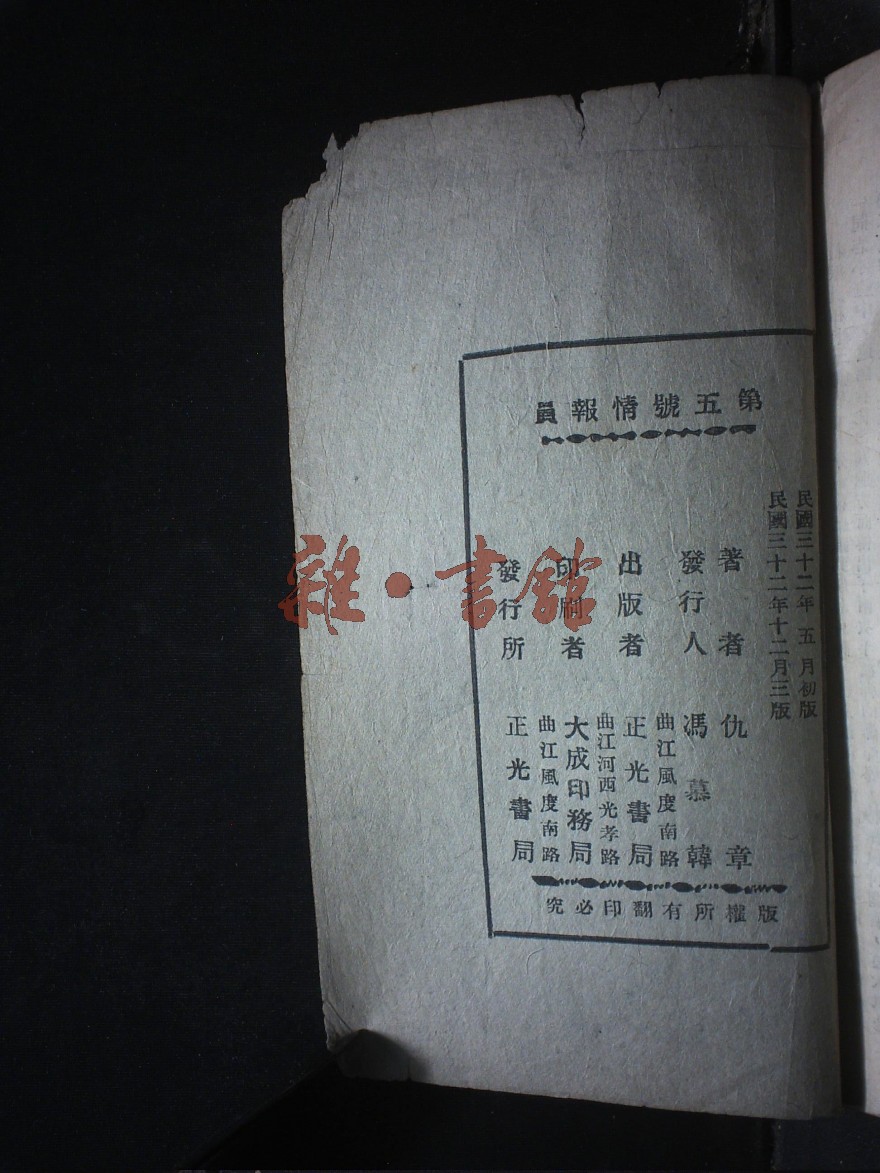 第五號情報員
民國三十二年五月初版
民國三十二年十二月三版
著者 仇章
發行人 馮慕韓
曲江風度南路
出版者 正光書局
曲江河西光孝路
印刷者 大成印務局
曲江風度南路
發行所 正光書局
版權所有翻印必究
雜·書館